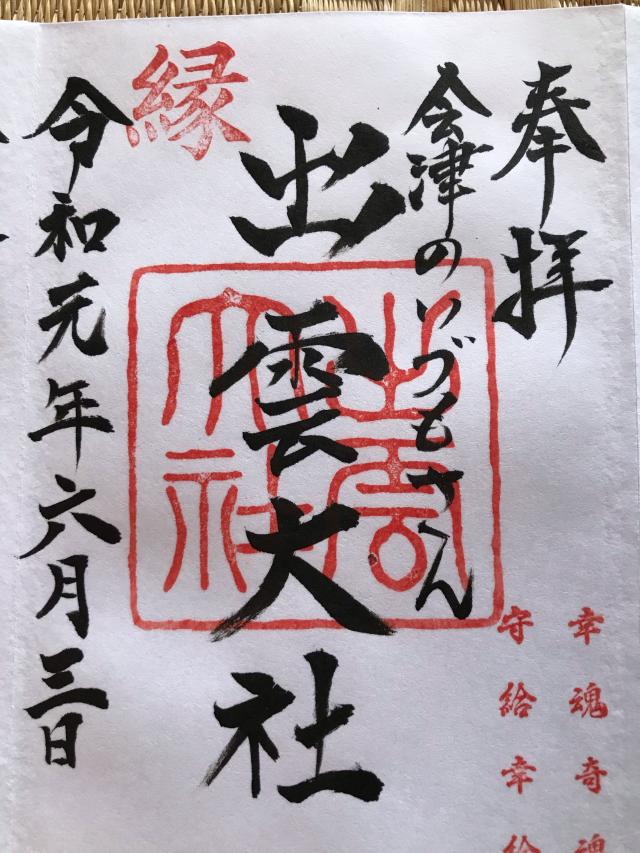 奉拝
会津のいづもさん
出雲大社
縁
令和元年六月三日
出雲大社
幸魂奇魂
守給幸給